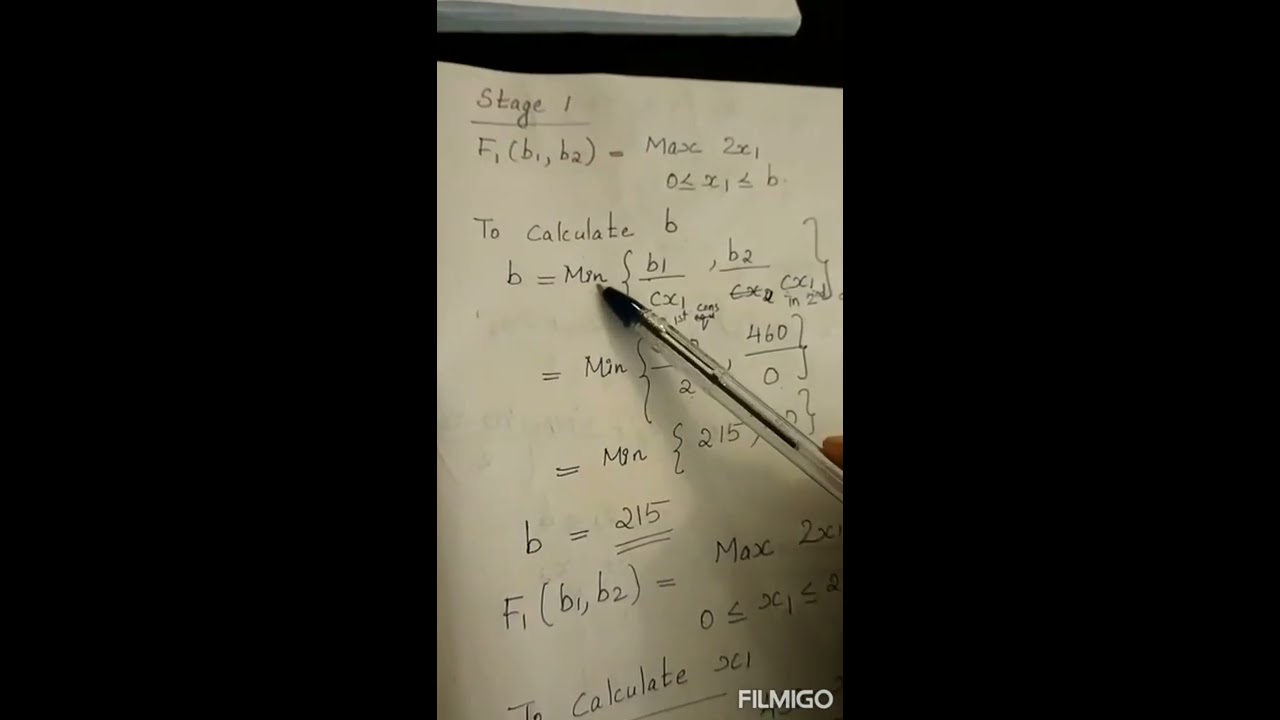 Stage 1
F₁(b₁, b₂) = Max 2x₁
0 ≤ x₁ ≤ b.
To Calculate b
b = Min { b1/Cx₁ , b₂/Cx₁ }
1st cons equ in 2nd
= Min { /2 , 460/0 }
= Min { 215, }
b = 215
F₁(b₁, b₂) = Max 2x₁
0 ≤ x₁ ≤ 2
To Calculate x1
FILMIGO